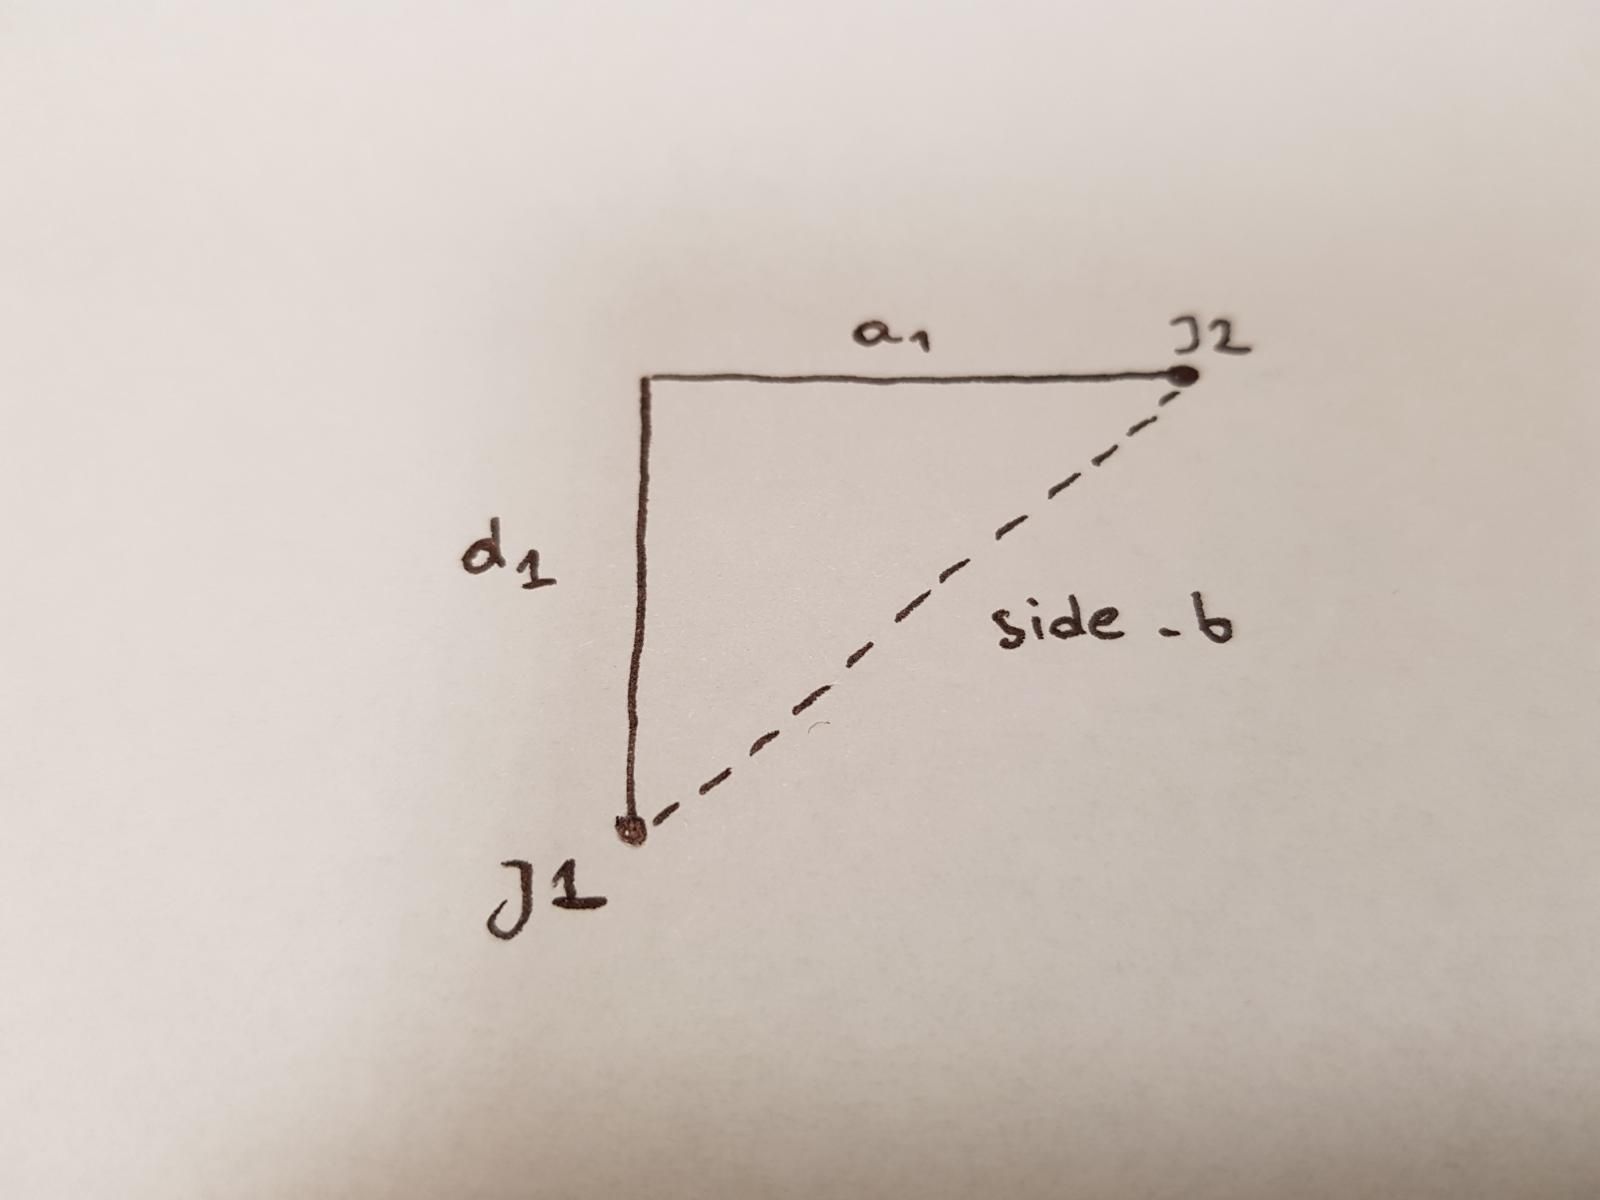 a₁
J2
d₁
side-b
J1